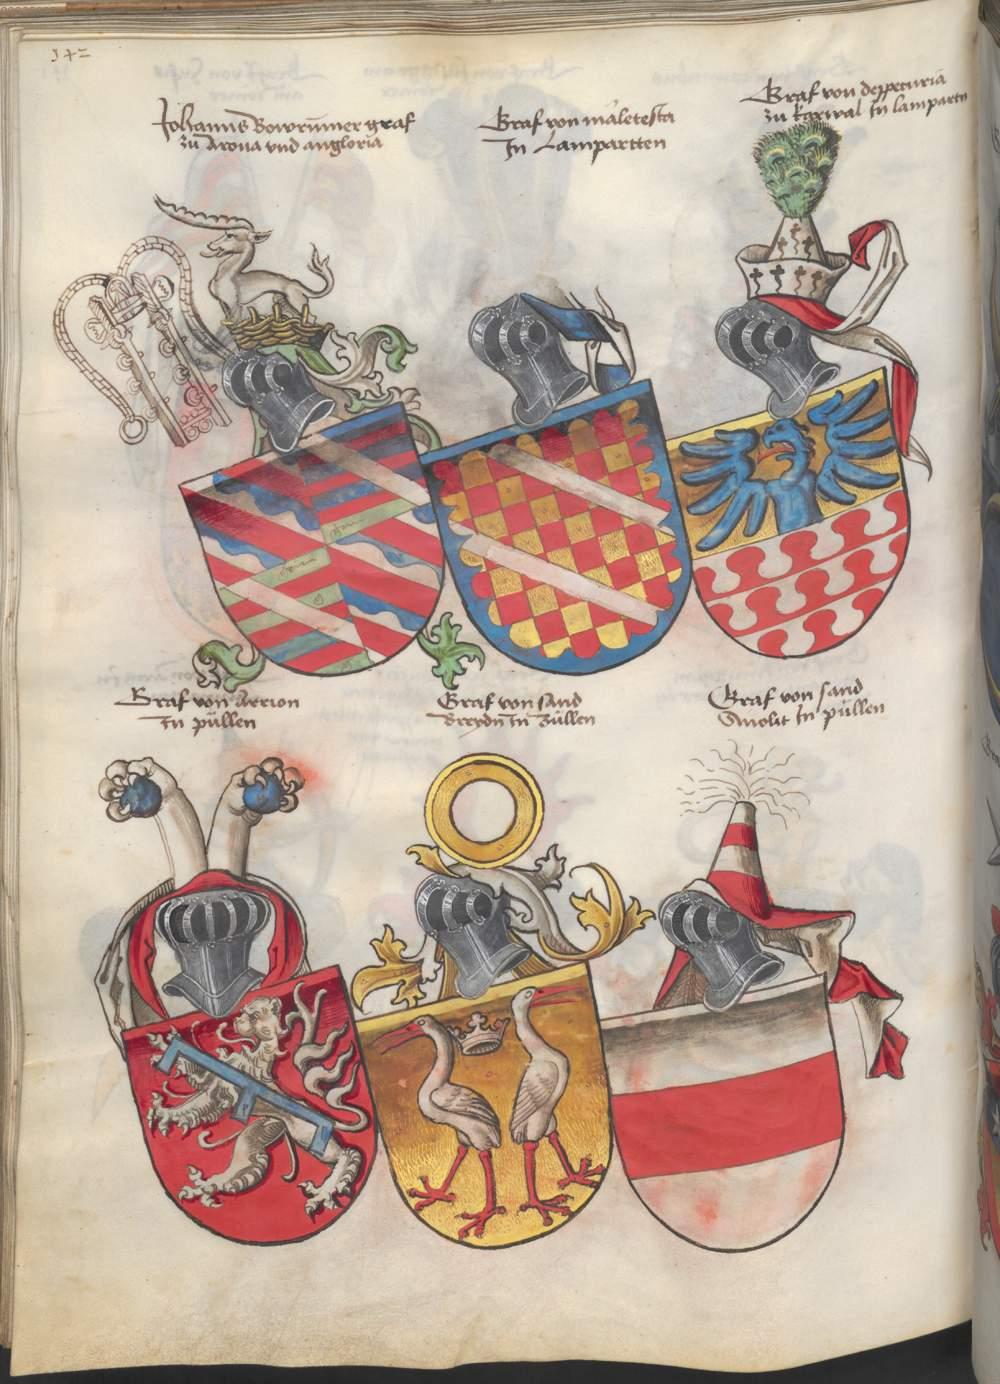 142
Johanns Bowrumer graf
zu Arona vnd angloria
Graf von maletesta
In Lampartten
Graf von deppeturia
zu karival In lamparten
Graf von Aerion
In püllen
Graf von sand
In züllen
Graf von sand
In püllen